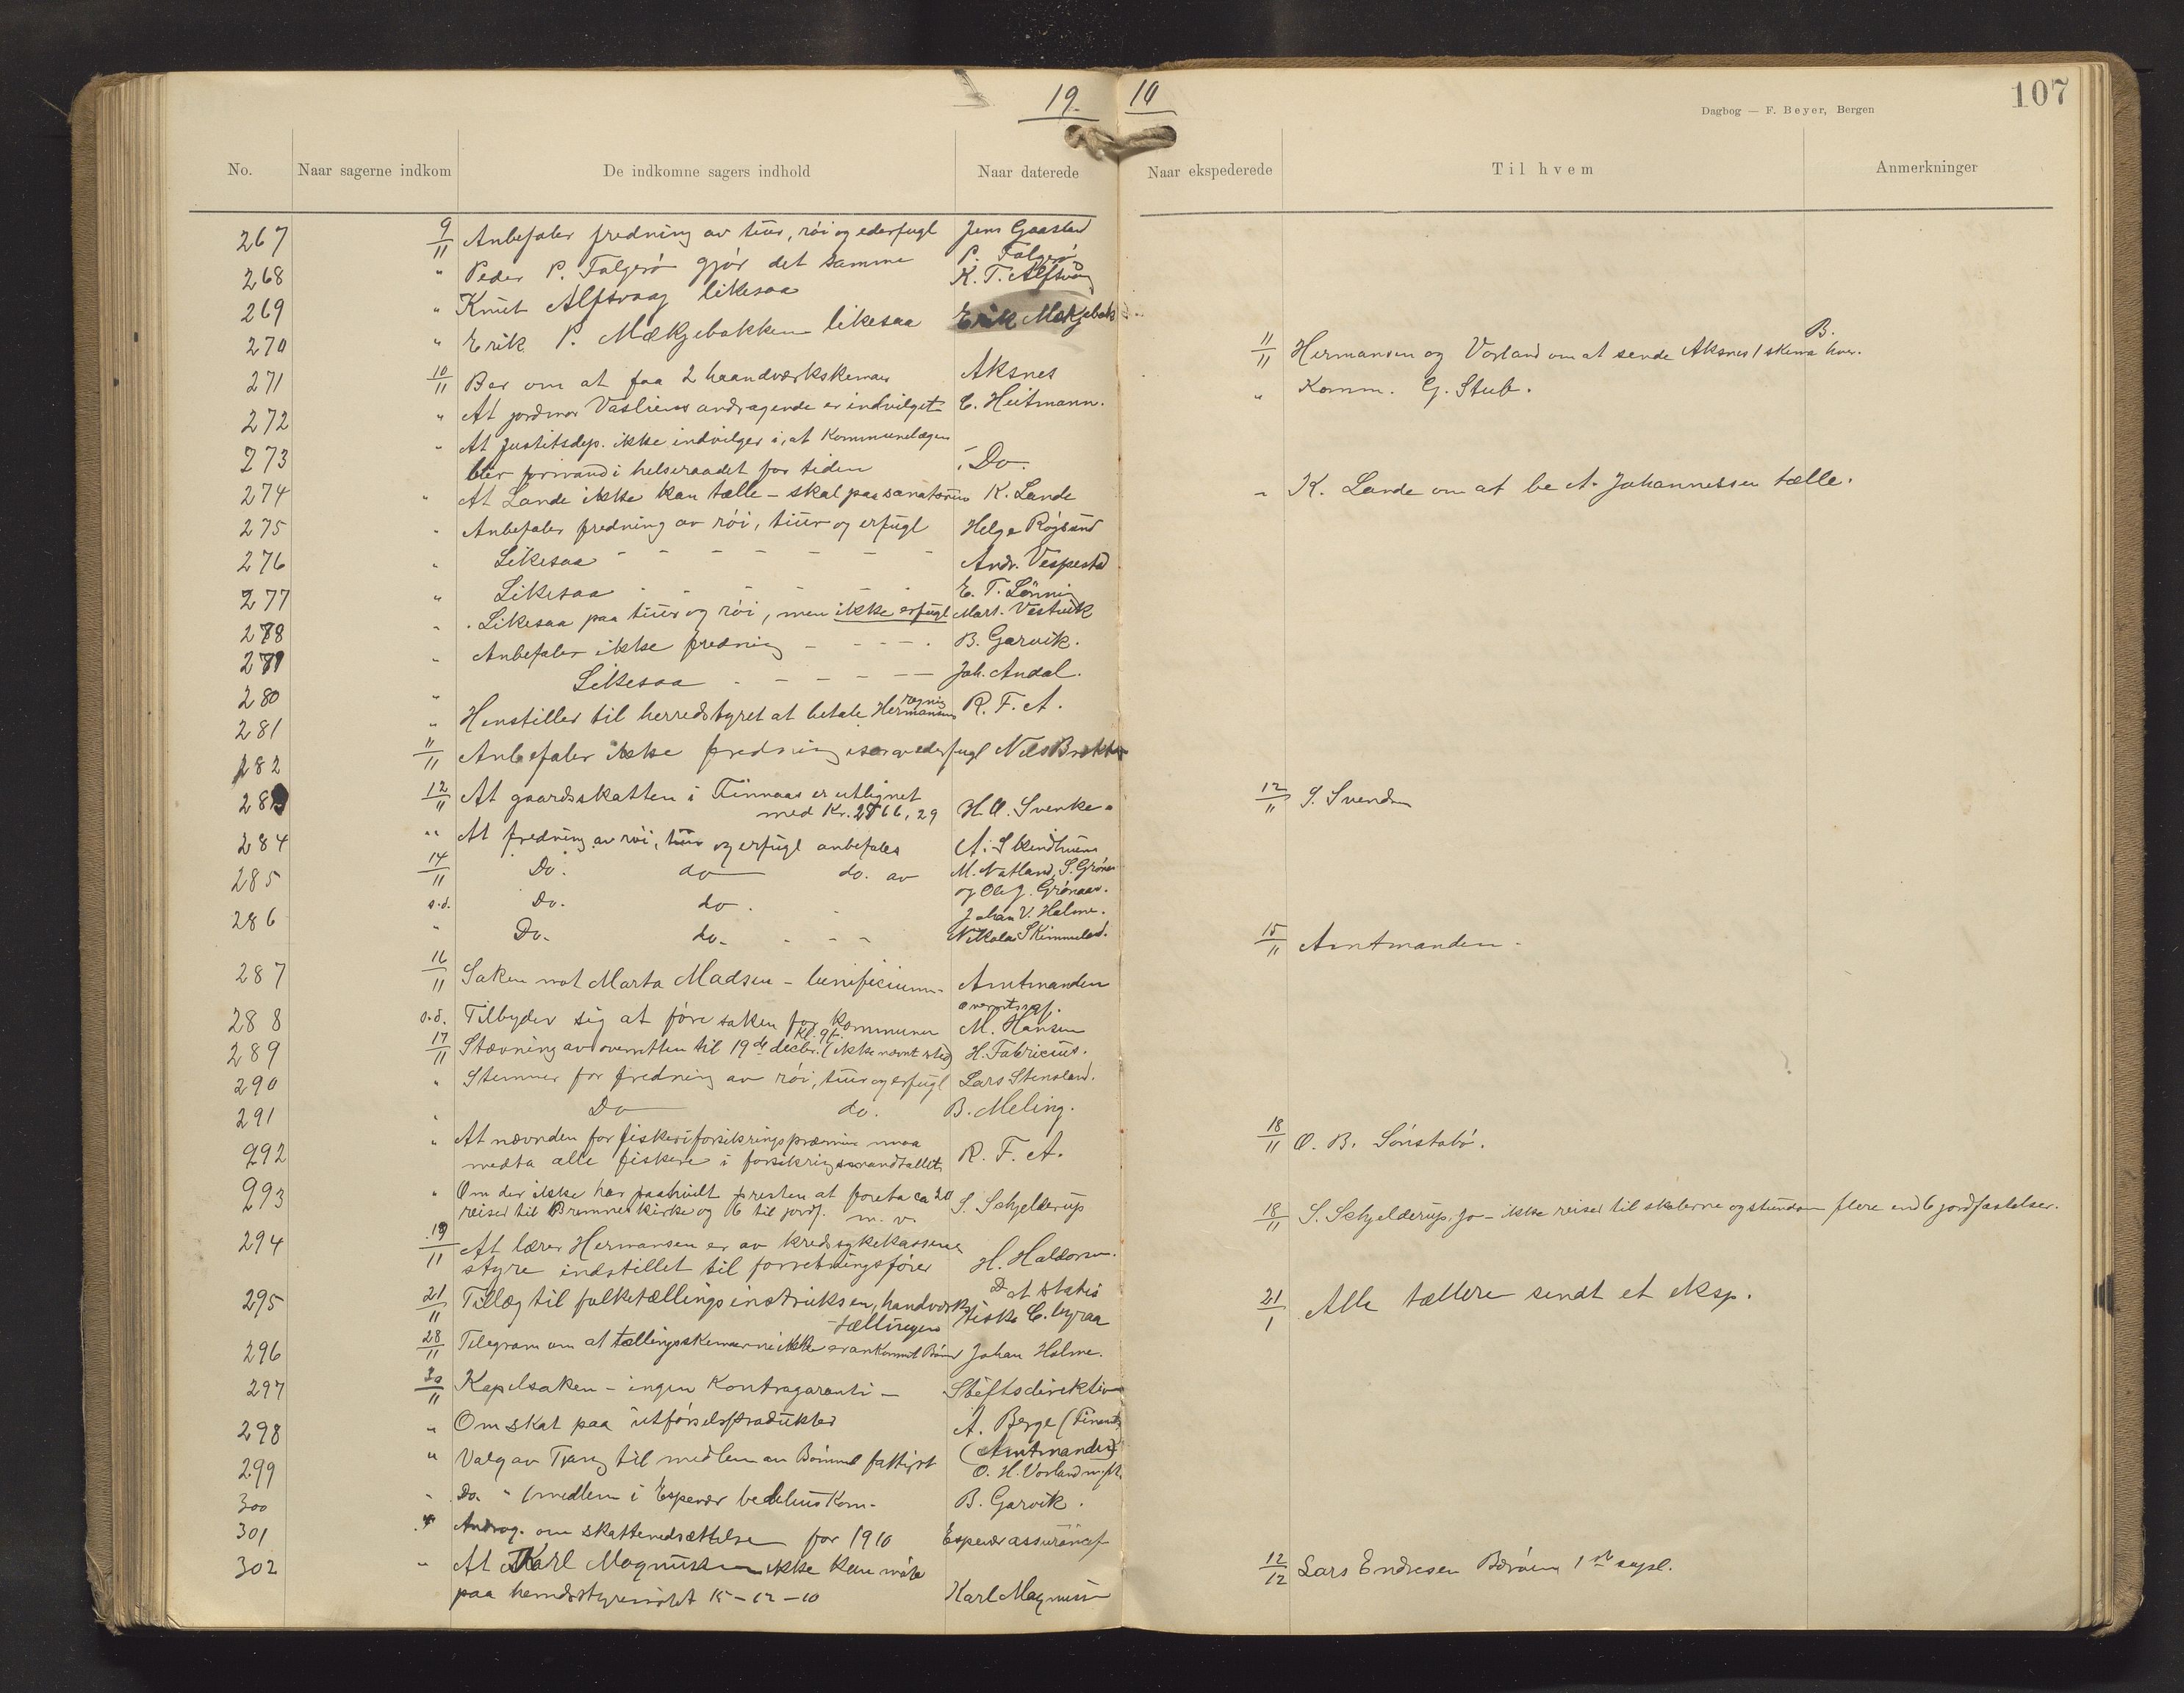 19. 10
107
Dagbog — F. Beyer, Bergen
No. Naar sagerne indkom De indkomne sagers indhold Naar daterede Naar ekspederede Til hvem Anmerkninger
267 9/11 Anbefaler fredning av tiur, röi og ederfugl Jens Gaastad
268 " Peder P. Folgerö gjör det samme P. Folgerö
269 " Knut Alfsvaag likesaa K. T. Alfsvaag
270 " Erik P. Mækjebakken likesaa Erik Mækjebak
271 10/11 Ber om at faa 2 haandverkskemaer Aksnes 11/11 Hermansen og Vorland om at sende Aksnes 1 skema hver. B.
272 " At jordmor Vasliens andragende er indvilget E. Heitmann. " Komm. G. Stub.
273 " At Justitsdep. ikke indvilger i, at Kommunelægen
blir formand i helseraadet for tiden Do.
274 " At Lande ikke kan tælle - skal paa sanatorium K. Lande " K. Lande om at be A. Johannessen tælle.
275 " Anbefaler fredning av röi, tiur og erfugl Helge Röjsund
276 " Likesaa - - - - - - Andr. Vespestad
277 " Likesaa - - - - - E. T. Lönning
278 " Likesaa paa tiur og röi, men ikke erfugl Mart. Vestvik
279 " Anbefaler ikke fredning - - - - B. Garvik.
280 " Likesaa - - - - - Joh. Andal.
281 " Henstiller til herredstyret at betale Hermansens regning R. F. A.
282 11/11 Anbefaler ikke fredning især av ederfugl Nils
283 12/11 At gaardsskatten i Finnaas er utlignet
med Kr. 2766,29 H. A. Svenke 12/11 S. Svendsen
284 " At fredning av röi, tiur og erfugl anbefales A.
285 14/11 Do. do do. av M. Natland, S. Grönaas
og Ole J. Grönaas.
286 s.d. Do. do. Johan V. Holme.
" Do. do. - - - Nikolai Skimmeland. 15/11 Amtmanden.
287 16/11 Saken mot Marta Madsen - beneficium - Amtmanden
288 s.d. Tilbyder sig at före saken for Kommunen overretssagf. M. Hansen
289 17/11 Stævning av overretten til 19de decbr. Kl. 9 f. (ikke nævnt sted) H. Fabricius.
290 " Stemmer for fredning av röi, tiur og erfugl Lars Stensland.
291 " Do do. B. Meling.
292 " At nævnden for fiskeriforsikringspræmie maa
medta alle fiskere i forsikringsmandtallet R. F. A. 18/11 O. B. Sönstabö.
293 " Om der ikke har paahvilt presten at foreta ca 20
reiser til Bremnes kirke og 6 til jordf. m. v. S. Schjelderup 18/11 S. Schjelderup. Jo - ikke reiser til skolerne og stundom flere end 6 jordfæstelser.
294 19/11 At lærer Hermansen er av kredssykekassens
styre indstillet til forretningsförer H. Haldorsen.
295 21/11 Tillæg til folketællingsinstruksen, handverks
tællingen Det statistiske C. byraa 21/1 Alle tællere sendt et eksp.
296 28/11 Telegram om at tællingsskemaerne ikke er ankommet Johan Holme.
297 30/11 Kapelsaken - ingen Kontragaranti - Stiftsdirektion
298 " Om skat paa utförselsprodukter A. Berge (Finants
(Amtmanden)
299 " Valg av Tjong til medlem av Bömmel fattigst O. H. Vorland m. fl.
300 " Do. " (medlem i Espevær bedehus Kom. B. Garvik.
301 " Androg. om skattenedsættelse for 1910 Espevær assurancef
302 " At Karl Magnussen ikke kan möte
paa herredstyremötet 15-12-10 Karl Magnussen 12/12 Lars Endresen Böröen 1ste supl.